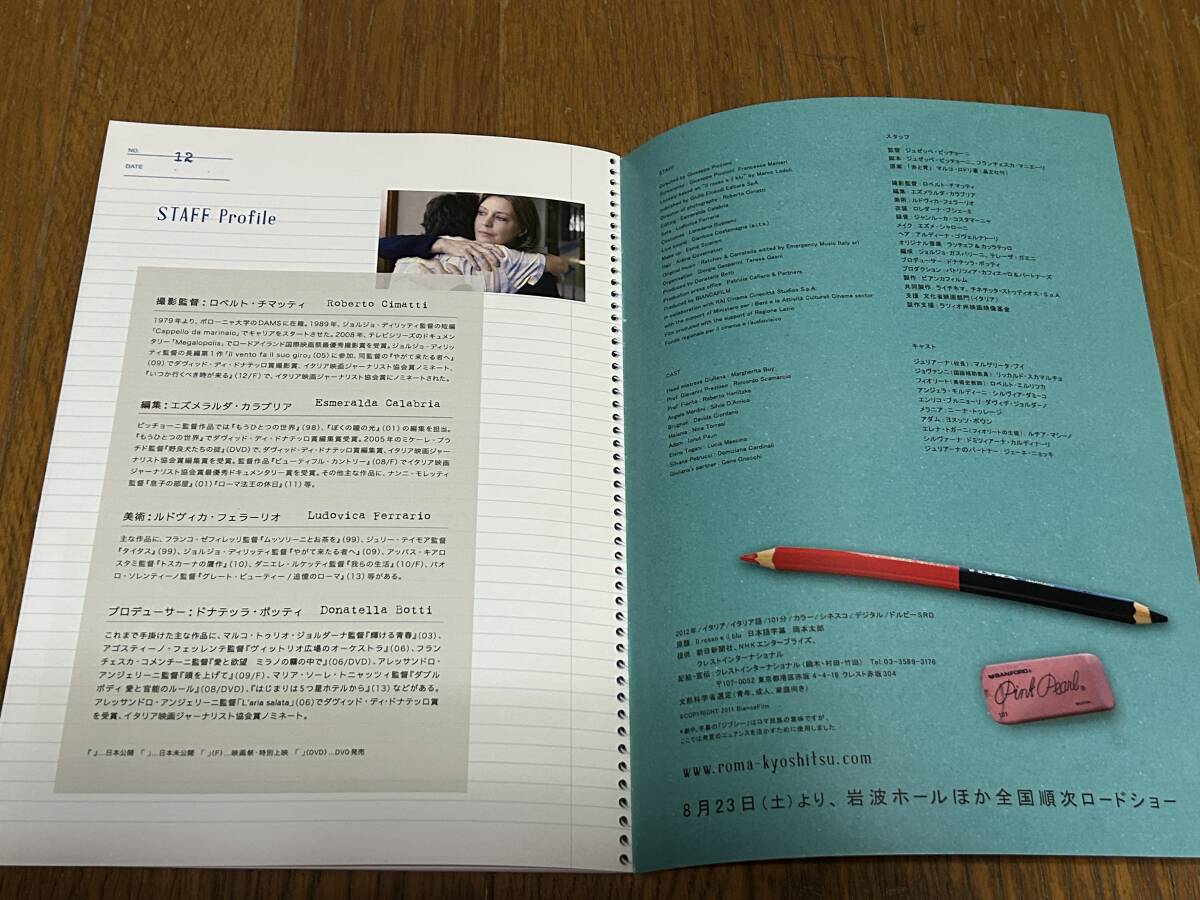 NO. 12
DATE
STAFF Profile
撮影監督：ロベルト・チマッティ Roberto Cimatti
1979年より、ボローニャ大学のDAMSに在籍。1989年、ジョルジョ・ディリッティ監督の短編
「Cappello da marinaio」でキャリアをスタートさせた。2008年、テレビシリーズのドキュメン
タリー「Megalopolis」でロードアイランド国際映画祭最優秀撮影賞を受賞。ジョルジョ・ディリッ
ティ監督の長編第1作「Il vento fa il suo giro」(05)に参加。同監督の『やがて来たる者へ』
(09)でダヴィッド・ディ・ドナテッロ賞撮影賞、イタリア映画ジャーナリスト協会賞にノミネート。
『いつか行くべき時が来る』(12/F)で、イタリア映画ジャーナリスト協会賞にノミネートされた。
編集：エズメラルダ・カラブリア Esmeralda Calabria
ピッチョーニ監督作品では『もうひとつの世界』(98)、『ぼくの瞳の光』(01)の編集を担当。
『もうひとつの世界』でダヴィッド・ディ・ドナテッロ賞編集賞受賞。2005年のミケーレ・プラ
チド監督『野良犬たちの掟』(DVD)で、ダヴィッド・ディ・ドナテッロ賞編集賞、イタリア映画ジャー
ナリスト協会賞編集賞を受賞。監督作品『ビューティフル・カントリー』(08/F)でイタリア映画
ジャーナリスト協会賞最優秀ドキュメンタリー賞を受賞。その他主な作品に、ナンニ・モレッティ
監督『息子の部屋』(01)『ローマ法王の休日』(11)等。
美術：ルドヴィカ・フェラーリオ Ludovica Ferrario
主な作品に、フランコ・ゼフィレッリ監督『ムッソリーニとお茶を』(99)、ジュリー・テイモア監督
『タイタス』(99)、ジョルジョ・ディリッティ監督『やがて来たる者へ』(09)、アッバス・キアロ
スタミ監督『トスカーナの贋作』(10)、ダニエレ・ルケッティ監督『我らの生活』(10/F)、パオ
ロ・ソレンティーノ監督『グレート・ビューティー/追憶のローマ』(13)等がある。
プロデューサー：ドナテッラ・ボッティ Donatella Botti
これまで手掛けた主な作品に、マルコ・トゥリオ・ジョルダーナ監督『輝ける青春』(03)、
アゴスティーノ・フェッレンテ監督『ヴィットリオ広場のオーケストラ』(06)、フラン
チェスカ・コメンチーニ監督『愛と欲望 ミラノの霧の中で』(06/DVD)、アレッサンドロ・
アンジェリーニ監督『頭を上げて』(09/F)、マリア・ソーレ・トニャッツィ監督『ダブル
ボディ 愛と官能のルール』(08/DVD)、『はじまりは5つ星ホテルから』(13)などがある。
アレッサンドロ・アンジェリーニ監督「L'aria salata」(06)でダヴィッド・ディ・ドナテッロ賞
を受賞、イタリア映画ジャーナリスト協会賞ノミネート。
『 』…日本公開 「 」…日本未公開 『 』(F)…映画祭・特別上映 『 』(DVD)…DVD発売
STAFF
Directed by Giuseppe Piccioni
Screenplay : Giuseppe Piccioni, Francesca Manieri,
Loosely based on "Il rosso e il blu" by Marco Lodoli,
published by Giulio Einaudi Editore SpA.
Director of photography : Roberto Cimatti
Editing : Esmeralda Calabria
Sets : Ludovica Ferrario
Costumes : Loredana Buscemi
Live sound : Gianluca Costamagna (a.i.t.s.)
Make up : Esmé Sciaroni
Hair : Aldina Governatori
Original music : Ratchev & Carratello edited by Emergency Music Italy srl
Organisation : Giorgio Gasparini, Teresa Gueni
Produced by Donatella Botti
Production press office : Patrizia Cafiero & Partners
Produced by BIANCAFILM
in collaboration with RAI Cinema Cinecittà Studios S.p.A.
with the support of Ministero per i Beni e le Attività Culturali Cinema sector
Film produced with the support of Regione Lazio
Fondo regionale per il cinema e l'audiovisivo
CAST
Head mistress Giuliana : Margherita Buy
Prof Giovanni Prezioso : Riccardo Scamarcio
Prof Fiorito : Roberto Herlitzka
Angela Mordini : Silvia D'Amico
Brugnoli : Davide Giordano
Melania : Nina Torresi
Adam : Ionut Paun
Elena Tagani : Lucia Mascino
Silvana Petrucci : Domiziana Cardinali
Giuliana's partner : Gene Gnocchi
スタッフ
監督：ジュゼッペ・ピッチョーニ
脚本：ジュゼッペ・ピッチョーニ、フランチェスカ・マニエーリ
原案：「赤と青」 マルコ・ロドリ著(晶文社刊)
撮影監督：ロベルト・チマッティ
編集：エズメラルダ・カラブリア
美術：ルドヴィカ・フェラーリオ
衣装：ロレダーナ・ブシェーミ
録音：ジャンルーカ・コスタマーニャ
メイク：エズメ・シャローニ
ヘア：アルディーナ・ゴヴェルナトーリ
オリジナル音楽：ラッチェフ&カッラテッロ
編成：ジョルジョ・ガスパリーニ、テレーザ・ガエニ
プロデューサー：ドナテッラ・ボッティ
プロダクション：パトリツィア・カフィエーロ&パートナーズ
製作：ビアンカフィルム
共同製作：ライチネマ、チネチッタ・ストゥディオス・S.p.A.
支援：文化省映画部門(イタリア)
製作支援：ラツィオ州映画映像基金
キャスト
ジュリアーナ(校長)：マルゲリータ・ブイ
ジョヴァンニ(国語補助教員)：リッカルド・スカマルチョ
フィオリート(美術史教師)：ロベルト・エルリツカ
アンジェラ・モルディーニ：シルヴィア・ダミーコ
エンリコ・ブルニョーリ：ダヴィデ・ジョルダーノ
メラニア：ニーナ・トッレージ
アダム：ヨヌッツ・パウン
エレナ・トガーニ(フィオリートの生徒)：ルチア・マシーノ
シルヴァーナ：ドミツィアーナ・カルディナーリ
ジュリアーナのパートナー：ジェーネ・ニョッキ
2012年/イタリア/イタリア語/101分/カラー/シネスコ/デジタル/ドルビーSRD
原題：Il rosso e il blu 日本語字幕：岡本太郎
提供：朝日新聞社、NHKエンタープライズ、
クレストインターナショナル
配給・宣伝：クレストインターナショナル(鏑木・村田・竹田) Tel:03-3589-3176
〒107-0052 東京都港区赤坂4-4-16 クレスト赤坂304
文部科学省選定(青年、成人、家庭向き)
©COPYRIGHT 2011 BiancaFilm
*劇中、字幕の「ジプシー」はロマ民族の意味ですが、
ここでは発言のニュアンスを活かすために使用しました
www.roma-kyoshitsu.com
8月23日(土)より、岩波ホールほか全国順次ロードショー
SANFORD
Pink Pearl®
101